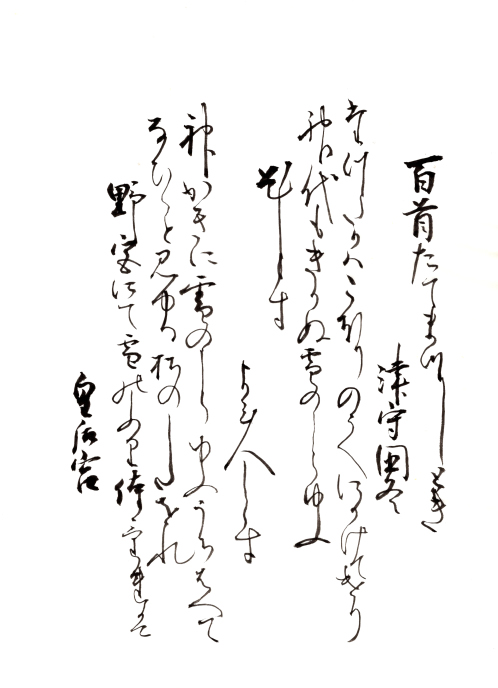 百首たてまつりしとき
津守国冬
たつたかはこほりのうへにかけてけり
神代もきかぬ雪のしらゆふ
題しらす
よみ人しらす
神かきに雪のしらゆふうちはへて
なひくと見ゆる松のしたをれ
野宮にて雪のふり侍
皇后宮